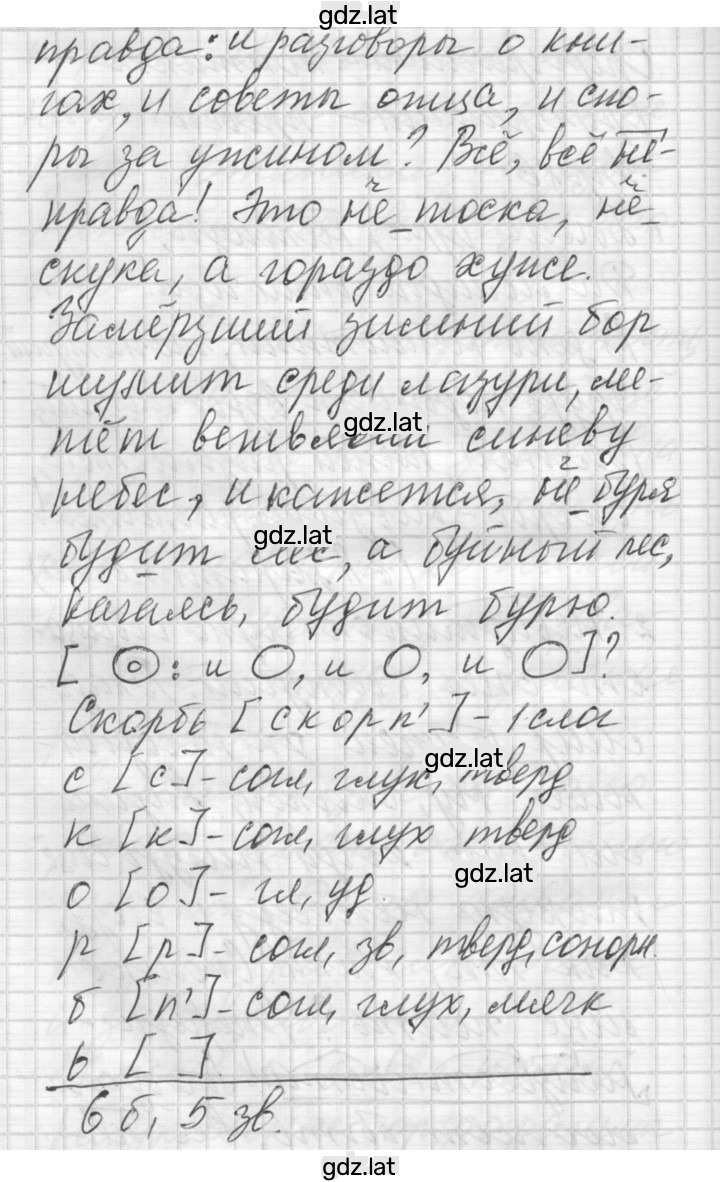 gdz.lat
правда: и разговоры о кни-
гах, и советы отца, и спо-
ры за ужином? Всё, всё не-
правда! Это не тоска, не
скука, а гораздо хуже.
Замёрзший зимний бор
шумит среди лазури, ме-
gdz.lat
тёт ветвями синеву
небес, и кажется, не буря
gdz.lat
будит лес, а буйный лес,
качаясь, будит бурю.
[ ⊙: и О, и О, и О]?
Скорбь [скорп'] - 1 слог
gdz.lat
с [с] - согл, глух, тверд
к [к] - согл, глух тверд
gdz.lat
о [о] - гл, уд.
р [р] - согл, зв, тверд, сонорн.
б [п'] - согл, глух, мягк
ь [ ]
6 б, 5 зв.
gdz.lat